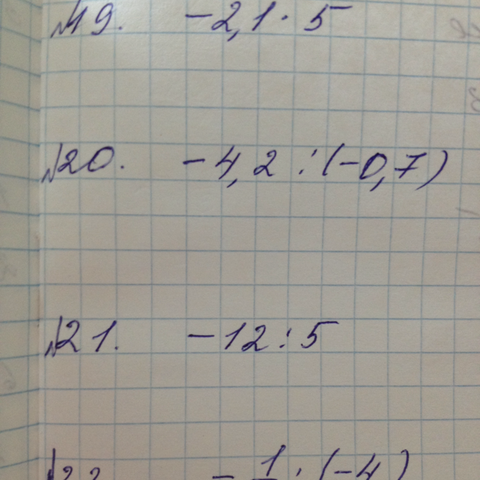 №19. -2,1 · 5
№20. -4,2 : (-0,7)
№21. -12 : 5
№22. - 1 : (-4)